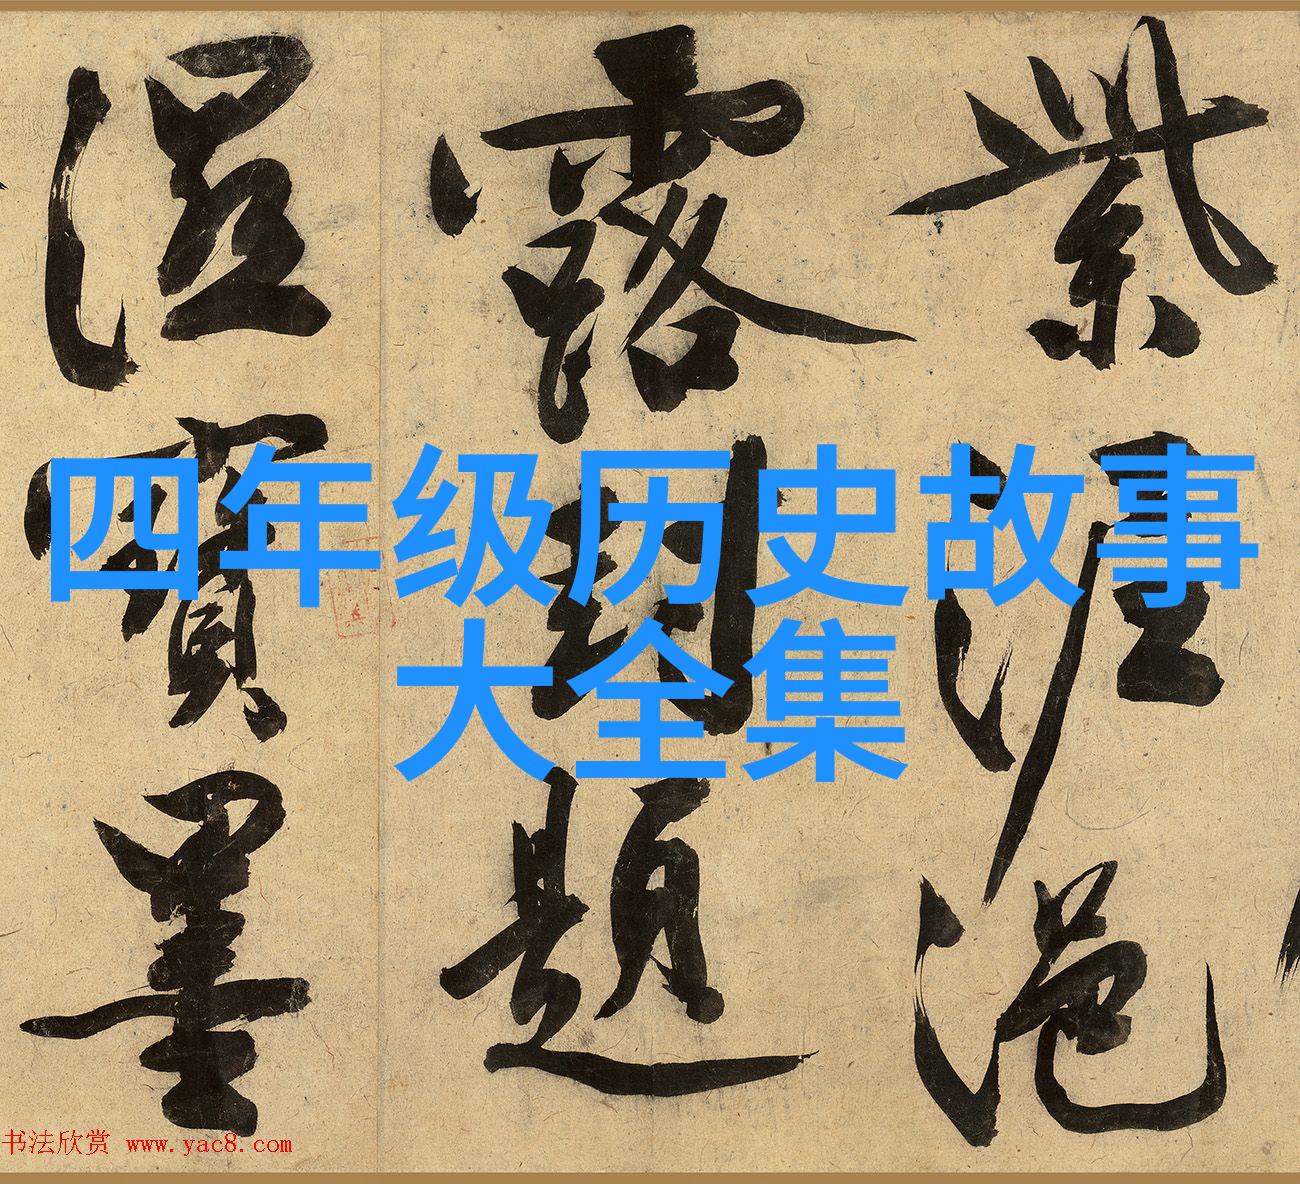 紫泥浥
露封題
湿寶墨
四年级历史故事
大全集
书法欣赏 www.yac8.com